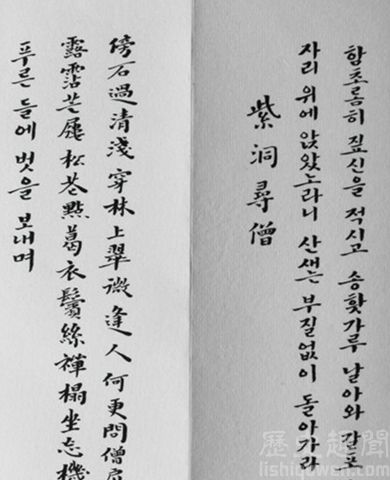 함초롬히 짚신을 적시고 송홧가루 날아와 갈포
자리 위에 앉았노라니 산새는 부질없이 돌아가라
紫洞尋僧
傍石過清淺穿林上翠微逢人何更問僧
露霑芒屨松花點葛衣鬢絲禪榻坐忘機
푸른 들에 벗을 보내며
歷史趣聞
lishiquwen.com